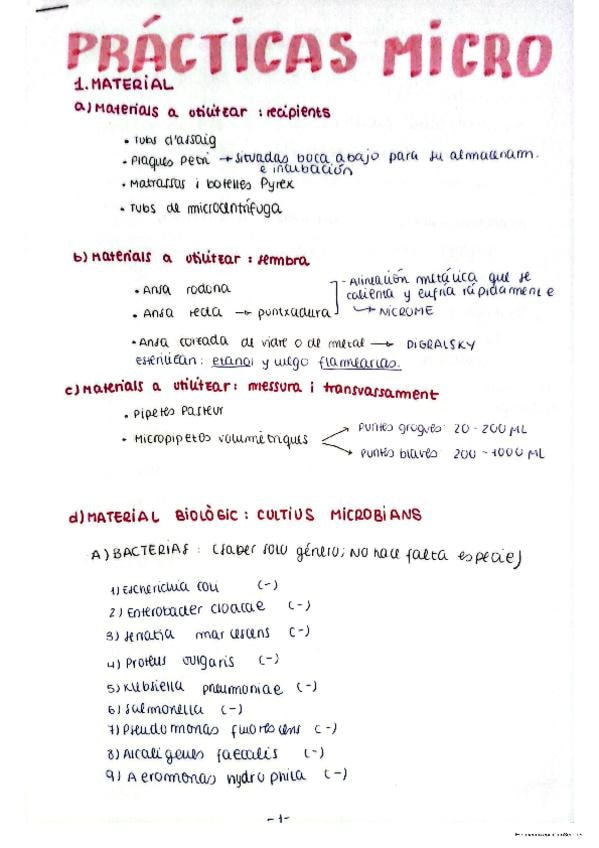 PRÁCTICAS MICRO
1. MATERIAL
a) Materials a utilitzar : recipients
• Tubs d'assaig
• Plaques Petri → situadas boca abajo para su almacenam.
e incubación
• Matrassos i botelles Pyrex
• Tubs de microcentrífuga
b) Materials a utilitzar : sembra
• Ansa rodona
- Alineación metálica que se
calienta y enfría rápidamente
• Ansa recta → puntxadura
↳ NICROME
• Ansa colzada de vidre o de metal → DIGRALSKY
esterilitzan : etanol y luego flamearlas.
c) Materials a utilitzar : messura i transvassament
• Pipetes Pasteur
• Micropipetes volumètriques
puntes grogues 20-200 µL
puntes blaves 200-1000 µL
d) MATERIAL BIOLÒGIC : CULTIUS MICROBIANS
A) BACTERIAS : (saber solo género; No hace falta especie)
1) Escherichia coli (-)
2) Enterobacter cloacae (-)
3) Serratia marcescens (-)
4) Proteus vulgaris (-)
5) Klebsiella pneumoniae (-)
6) Salmonella (-)
7) Pseudomonas fluorescens (-)
8) Alcaligenes faecalis (-)
9) Aeromonas hydrophila (-)
-1-